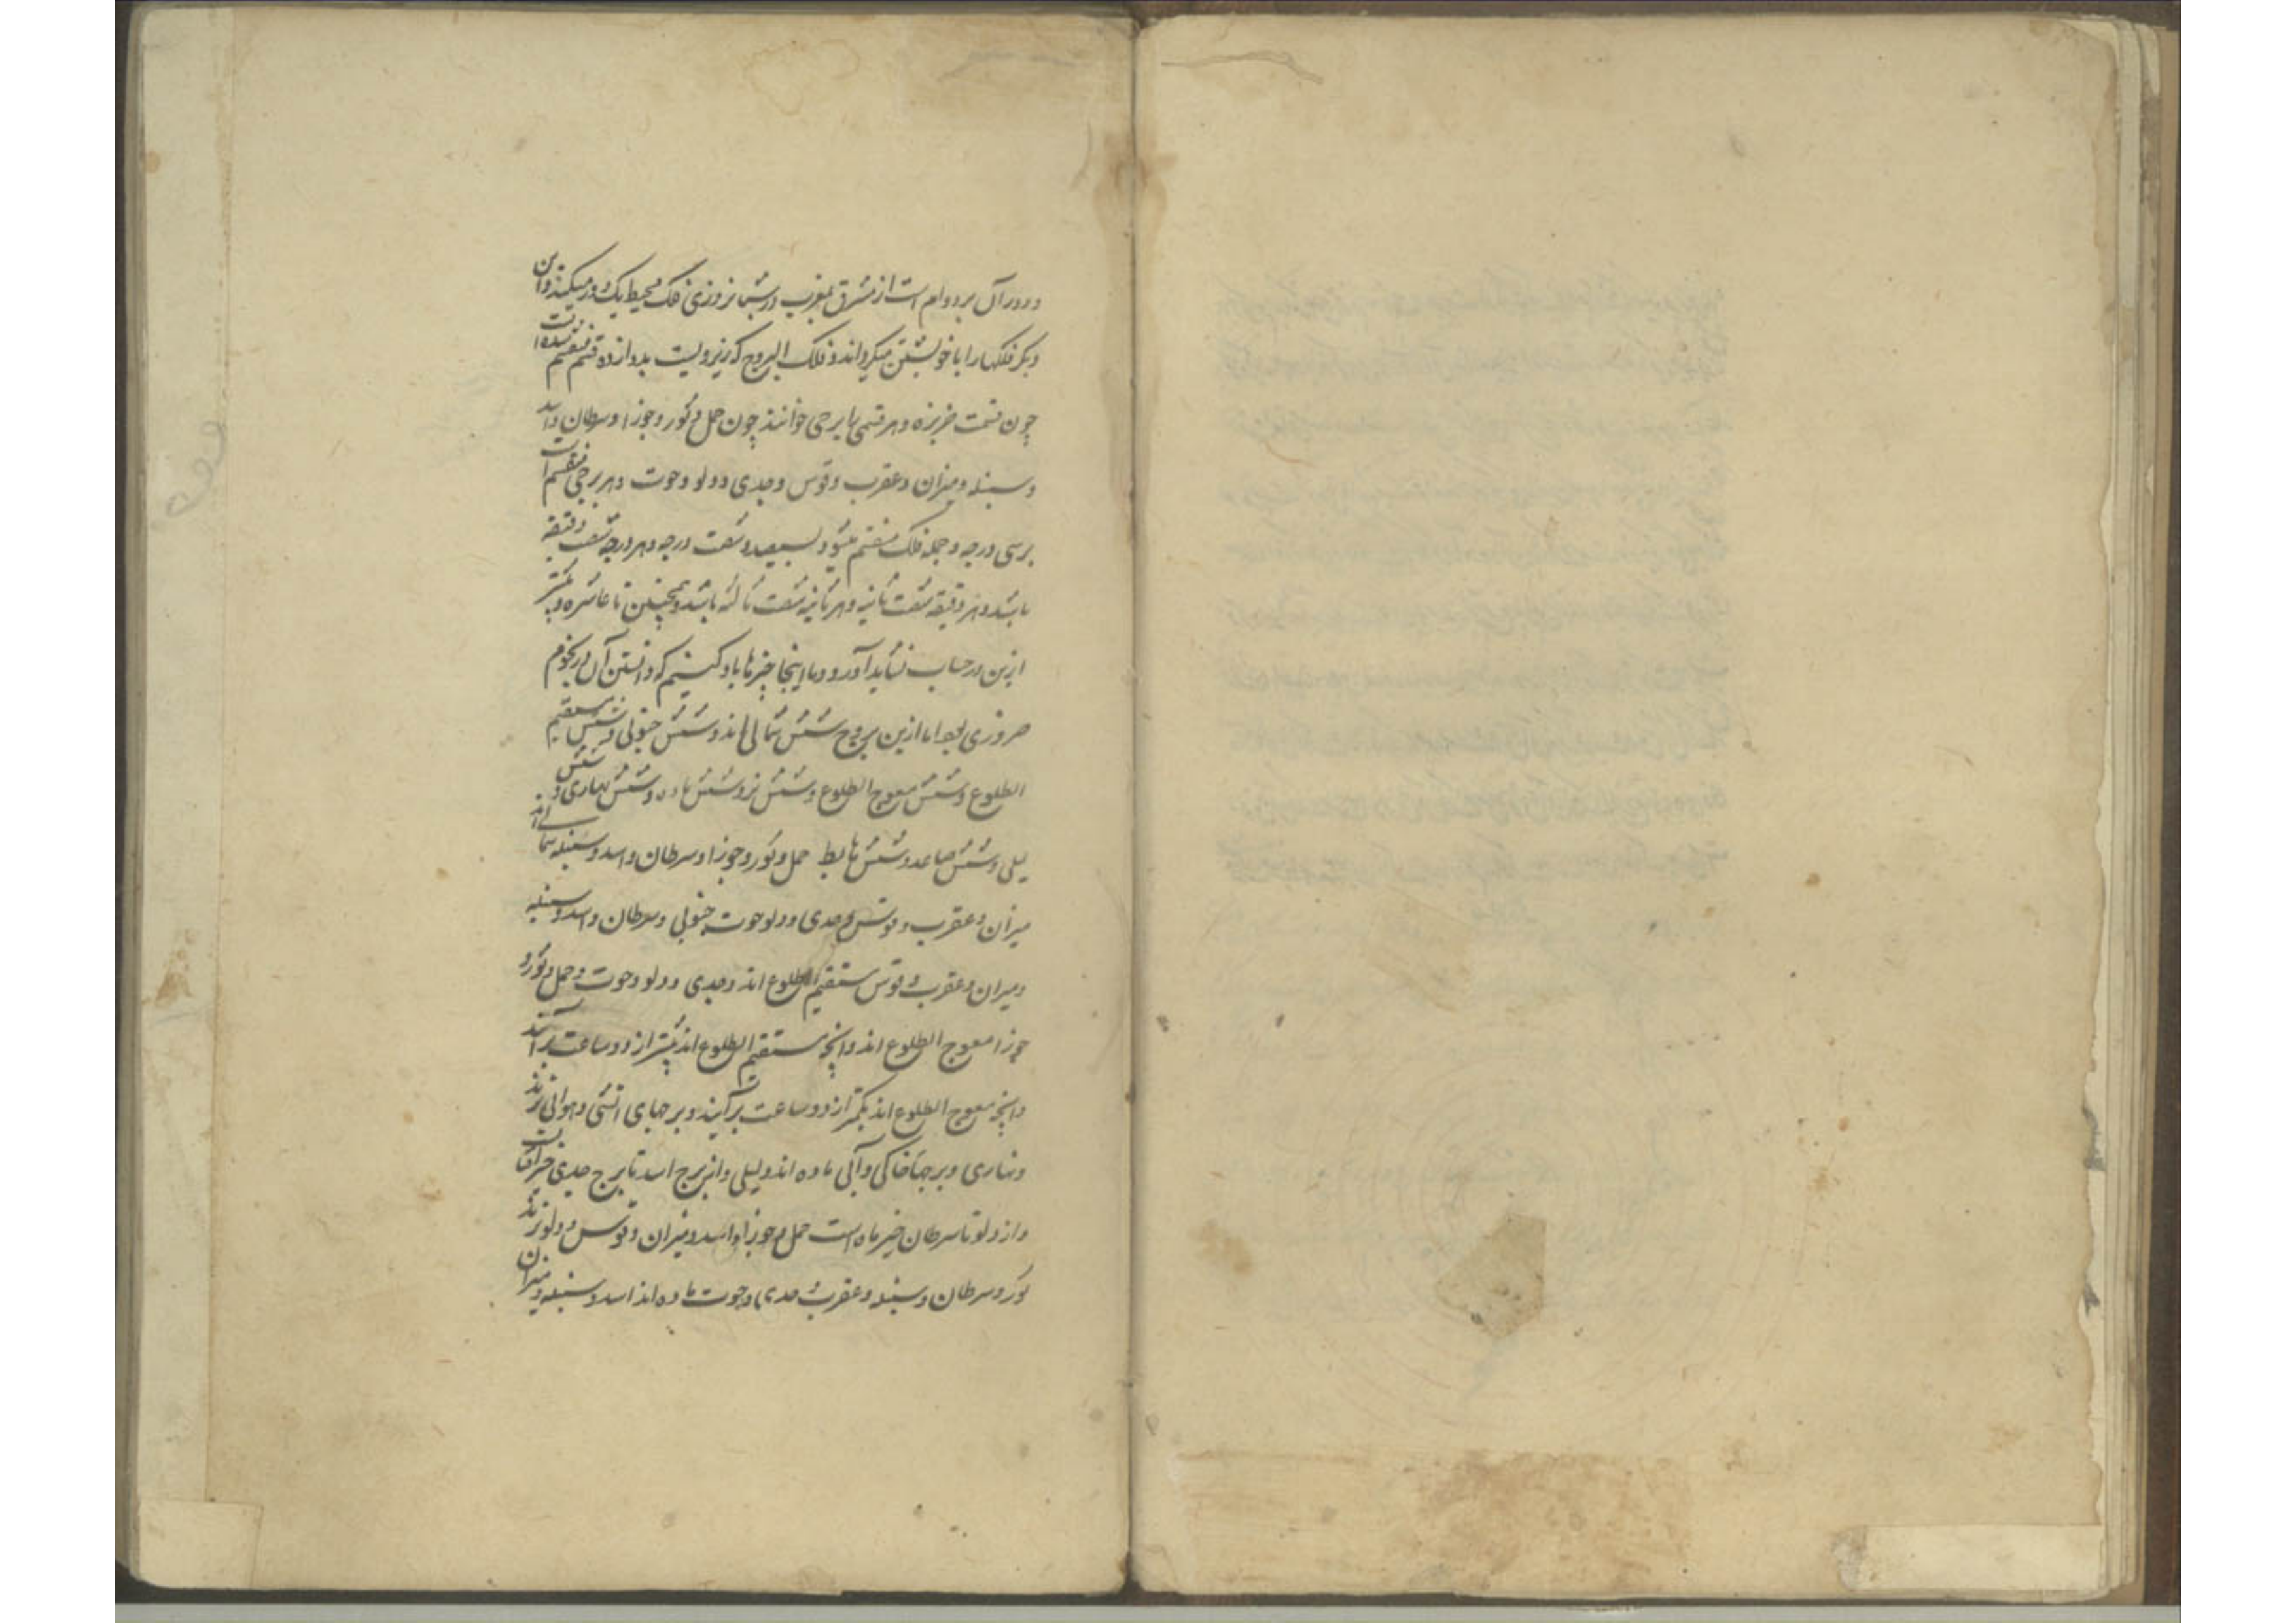 و دور آن بر دوام است از مشرق بمغرب در شبانروزی فلک محیط یک دور میکند و این
دیگر فلکها را با خویشتن میگرداند و فلک البروج که زیر ویست بدوازده قسم منقسم شده است
چون قسمت خربزه و هر قسمی را برجی خوانند چون حمل و ثور و جوزا و سرطان و اسد
و سنبله و میزان و عقرب و قوس و جدی و دلو و حوت و هر برجی منقسم است
برسی درجه و جمله فلک منقسم میشود بسیصد و شصت درجه و هر درجه شصت دقیقه
باشد و هر دقیقه شصت ثانیه و هر ثانیه شصت ثالثه باشد و همچنین تا عاشره و بیشتر
ازین در حساب نشاید آورد و ما اینجا چیزها یاد کنیم که دانستن آن در نجوم
ضروری بود اما ازین بروج شش شمالی اند و شش جنوبی و شش مستقیم
الطلوع و شش معوج الطلوع و شش نر و شش ماده و شش نهاری و شش
لیلی و شش صاعد و شش هابط حمل و ثور و جوزا و سرطان و اسد و سنبله شمالی اند
میزان و عقرب و قوس و جدی و دلو و حوت جنوبی و سرطان و اسد و سنبله
و میزان و عقرب و قوس مستقیم الطلوع اند و جدی و دلو و حوت و حمل و ثور و
جوزا معوج الطلوع اند و آنچه مستقیم الطلوع اند بیشتر از دو ساعت بر آیند
و آنچه معوج الطلوع اند بکمتر از دو ساعت برآیند و برجهای آتشی و هوائی نرند
و نهاری و برجهاء خاکی و آبی ماده اند و لیلی و از برج اسد تا برج جدی حیز آفتابست
و از دلو تا سرطان حیز ماه است حمل و جوزا و اسد و میزان و قوس و دلو نرند
ثور و سرطان و سنبله و عقرب و جدی و حوت ماده اند اسد و سنبله و میزان